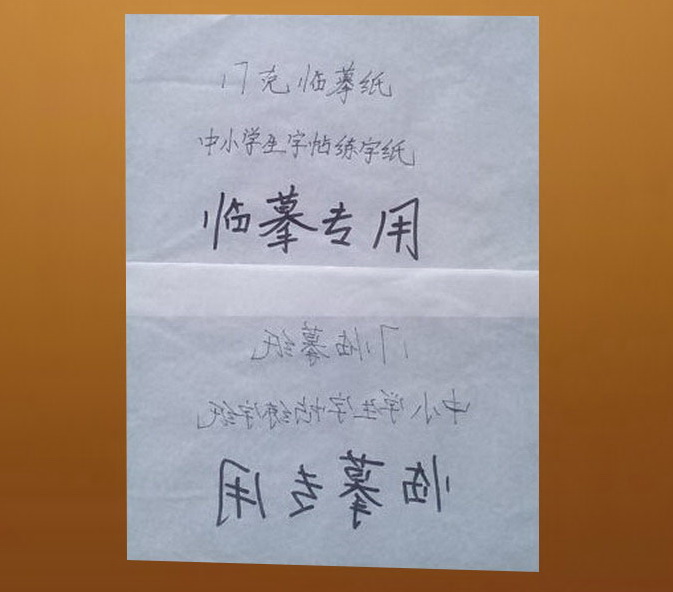 17克临摹纸
中小学生字帖练字纸
临摹专用
17临摹纸
中小学生字帖练字纸
临摹专用